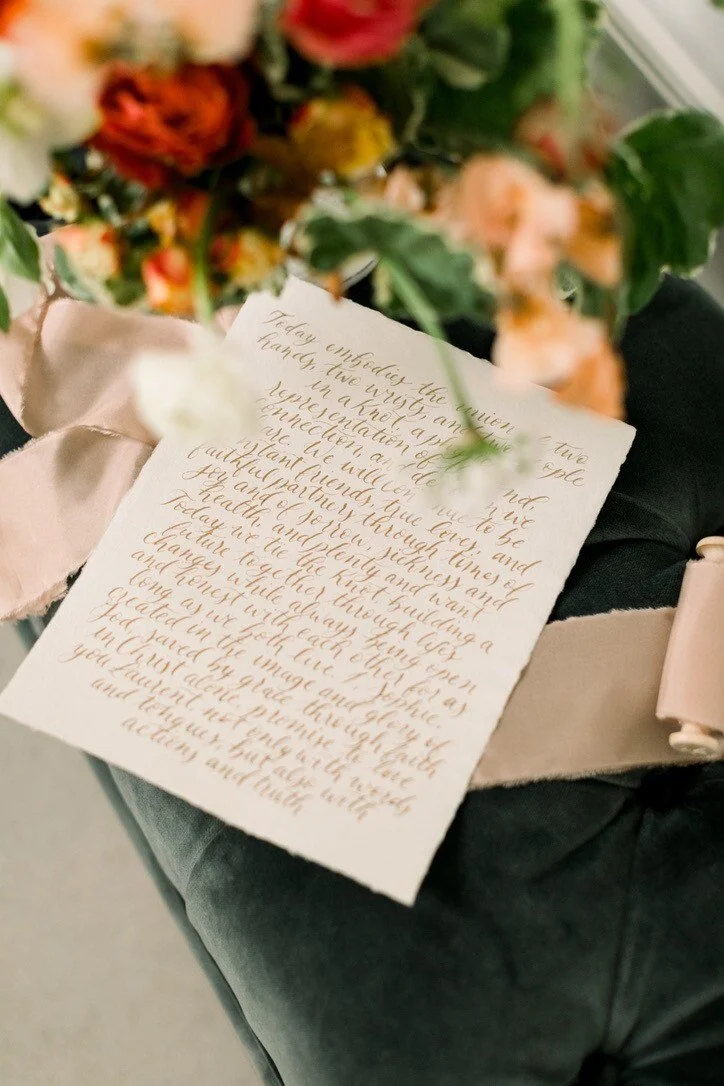 Today embodies the union two
hands, two wrists, and
in a knot a
representation of
connection, and
care. We will to be
constant friends, true lovers, and
faithful partners through times of
joy and of sorrow, sickness and
health, and plenty and want
Today we tie the knot building a
future together through lifes
changes while always being open
and honest with each other for as
long as we both live. I, Sophie,
created in the image and glory of
God, saved by grace through faith
in Christ alone, promise to love
you Laurent not only with words
and tongues, but also with
actions and truth